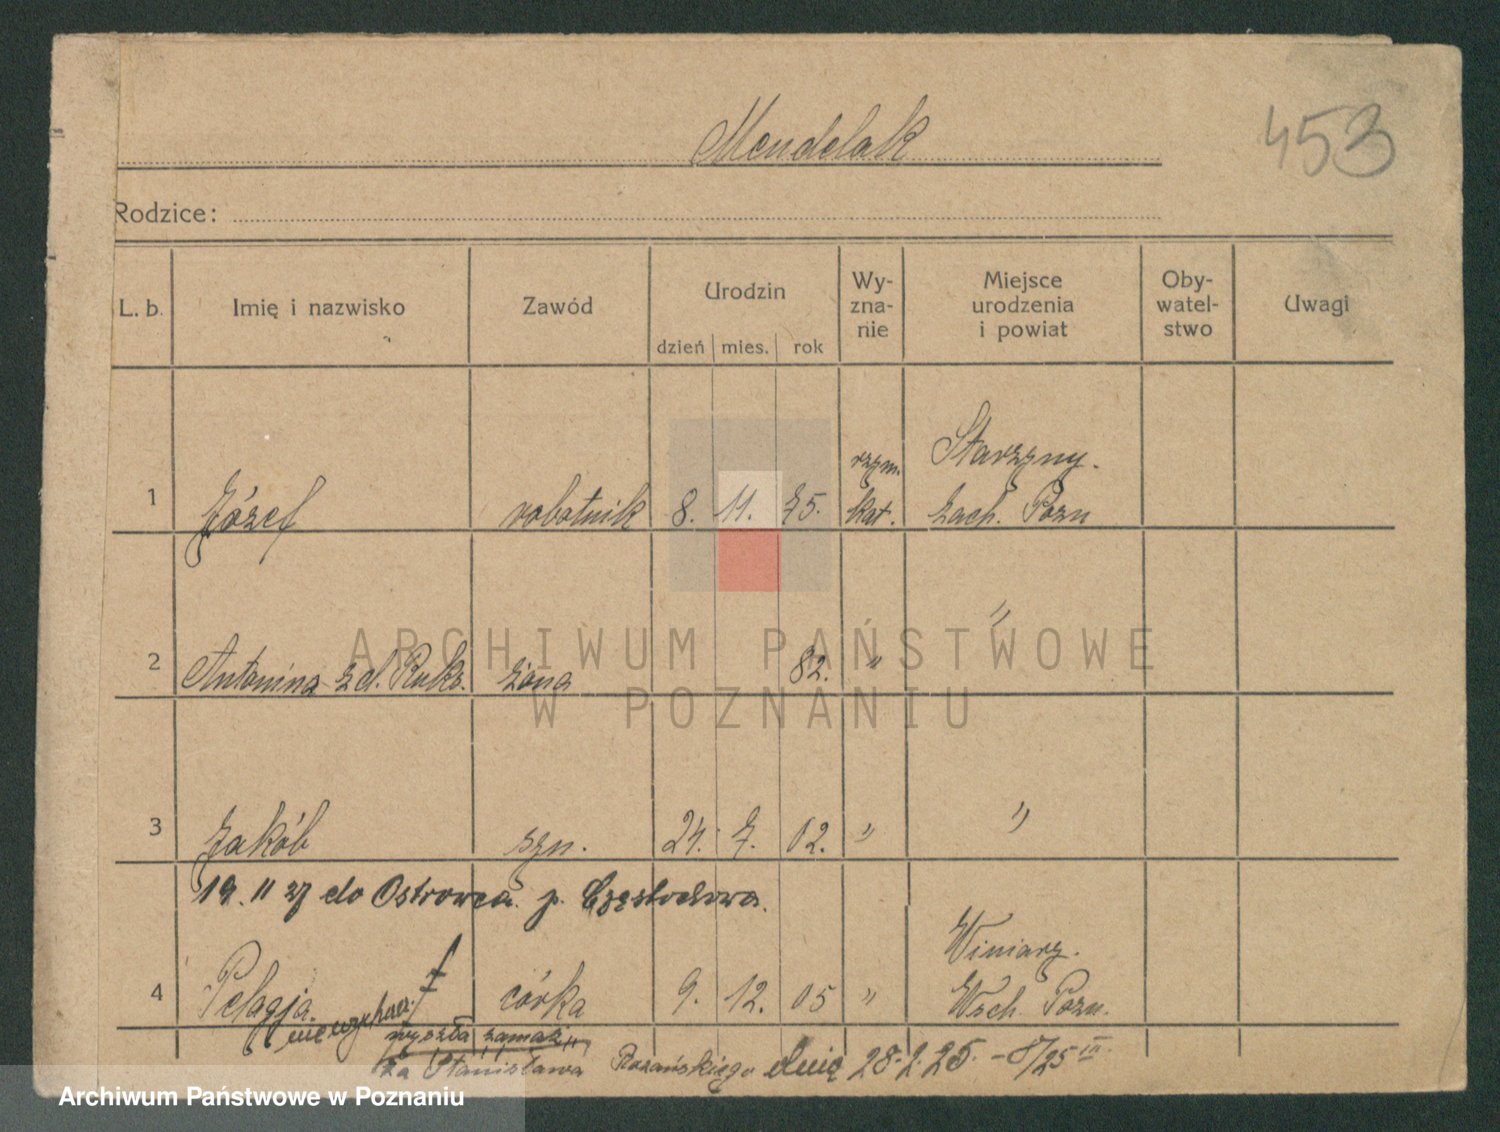 Mendelak
453
Rodzice:
L. b.
Imię i nazwisko
Zawód
Urodzin
dzień mies. rok
Wy-
zna-
nie
Miejsce
urodzenia
i powiat
Oby-
watel-
stwo
Uwagi
1 Józef robotnik 8. 11. 75. rzym. kat. Starzyny. zach. Pozn
2 Antonina z d. żona 82. " "
3 Jakób syn. 24. 7. 02. " "
19. 11 27 do Ostrowca. p. Częstochowa.
4 Pelagja córka 9. 12. 05 " Winiary. Wsch. Pozn.
wyszła zamąż
za Stanisława Rozańskiego dnia 28. 2. 25.
ARCHIWUM PAŃSTWOWE
W POZNANIU
Archiwum Państwowe w Poznaniu